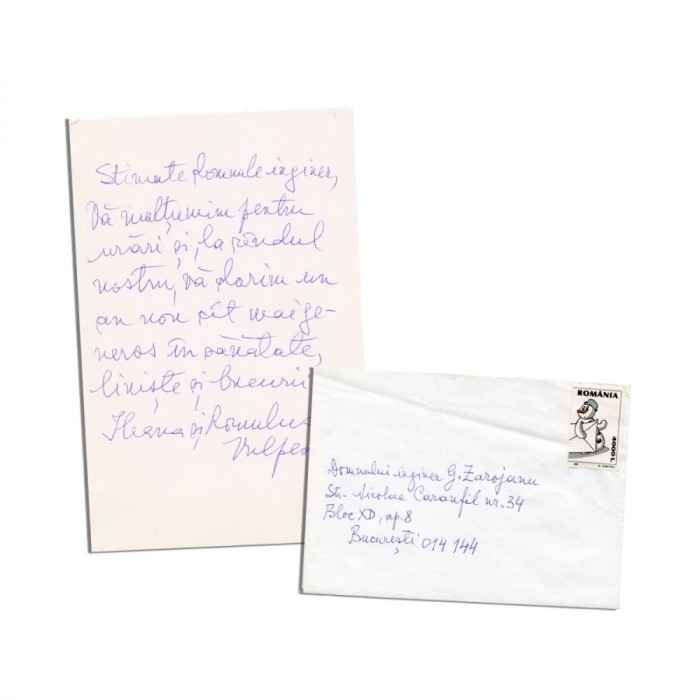 Stimate domnule inginer,
Vă mulțumim pentru
urări și, la rîndul
nostru, vă dorim un
an nou cît mai ge-
neros în sănătate,
liniște și bucurii
Ileana și Romulus
Vulpes
ROMÂNIA
4000 L
Domnului inginer G. Zarojanu
Str. Nicolae Caranfil nr. 34
Bloc XD, ap. 8
București 014 144